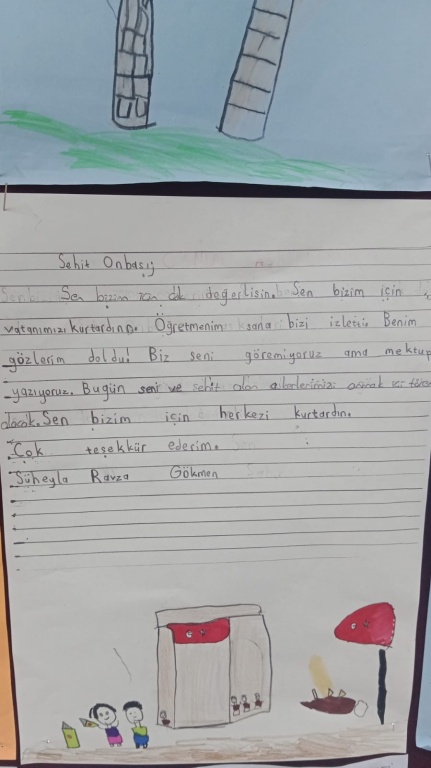 Şehit Onbaşı
Sen bizim için çok değerlisin. Sen bizim için
vatanımızı kurtardın. Öğretmenim sana bizi izletti. Benim
gözlerim doldu! Biz seni göremiyoruz ama mektup
yazıyoruz. Bugün seni ve şehit olan askerlerimizi anmak
olacak. Sen bizim için herkezi kurtardın.
Çok teşekkür ederim.
Süheyla Ravza Gökmen